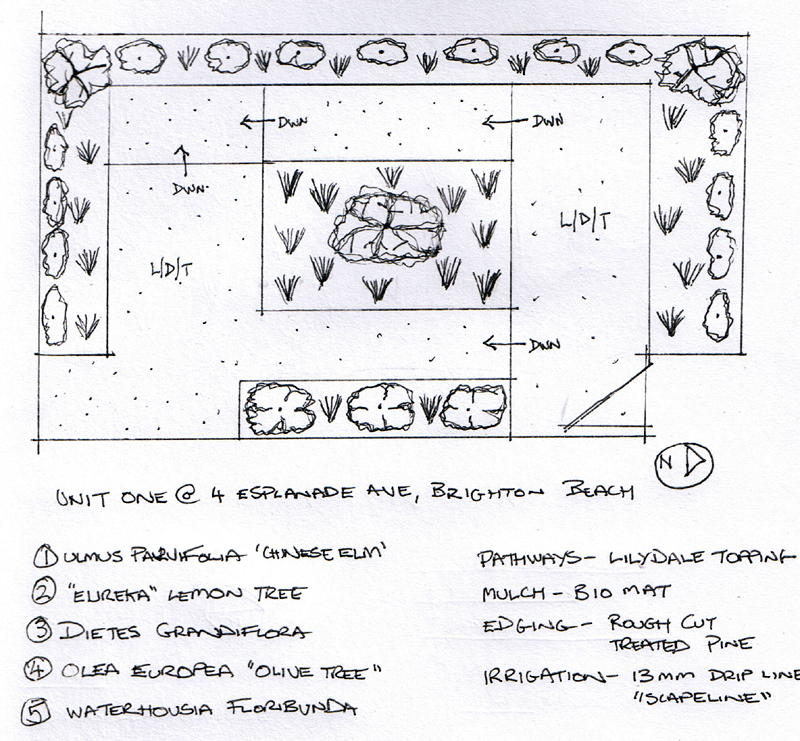 DWN
DWN
DWN
L/D/T
L/D/T
DWN
N
UNIT ONE @ 4 ESPLANADE AVE, BRIGHTON BEACH
① ULMUS PARVIFOLIA 'CHINESE ELM'
② "EUREKA" LEMON TREE
③ DIETES GRANDIFLORA
④ OLEA EUROPEA "OLIVE TREE"
⑤ WATERHOUSIA FLORIBUNDA
PATHWAYS - LILYDALE TOPPING
MULCH - BIO MAT
EDGING - ROUGH CUT
TREATED PINE
IRRIGATION - 13mm DRIP LINE
"SCAPELINE"